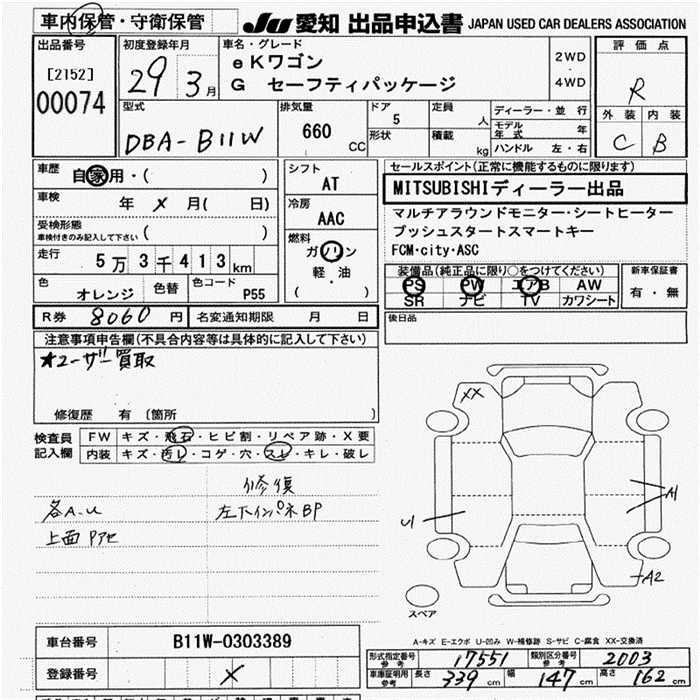 車内保管・守衛保管
JU 愛知 出品申込書 JAPAN USED CAR DEALERS ASSOCIATION
出品番号
[2152]
00074
初度登録年月
29 3 月
車名・グレード
eKワゴン
G セーフティパッケージ
2WD
・
4WD
評価点
R
外装 内装
C B
型式
DBA-B11W
排気量
660
CC
ドア
5
形状
定員
人
積載
kg
ディーラー・並行
モデル年式 年
ハンドル 左・右
車歴
自家用・( )
車検
年 メ 月( 日)
受検形態
車検付きのみ記入して下さい ( )
走行
5万3千413km
色
オレンジ
色替
色コード
P55
シフト
AT
冷房
AAC
燃料
ガソリン
軽・油
( )
セールスポイント(正常に機能するものに限ります)
MITSUBISHIディーラー出品
マルチアラウンドモニター・シートヒーター
プッシュスタートスマートキー
FCM・city・ASC
装備品(純正品に限り○をつけてください)
PS PW エアB AW
SR ナビ TV カワシート
新車保証書
有・無
R券 8060 円
名変通知期限 月 日
後日品
注意事項申告欄(不具合内容等は具体的に記入して下さい)
★ユーザー買取
修復歴 有 〔箇所 〕
検査員
記入欄
FW キズ・飛石・ヒビ割・リペア跡・X要
内装 キズ・汚レ・コゲ・穴・スレ・キレ・破レ
修復
各A.U 左下インパネBP
上面Pアセ
XX
A1
U1
A2
スペア
A-キズ E-エクボ U-凹み W-補修跡 S-サビ C-腐食 XX-交換済
車台番号 B11W-0303389
登録番号 メ
形式指定番号 参考 17551
類別区分番号 参考 2003
車庫証明用 参考 長さ 339 cm 幅 147 cm 高さ 162 cm